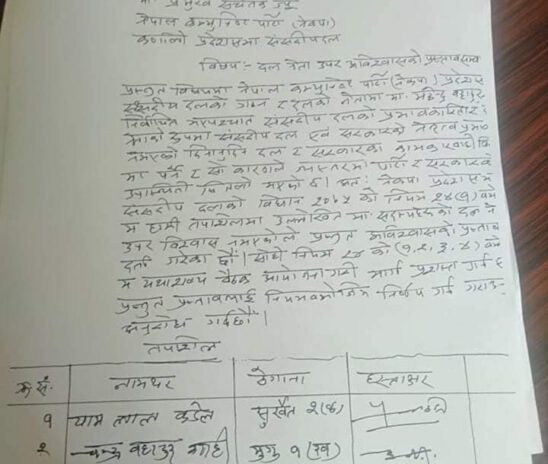 मा. प्रमुख सचेतक ज्यू
नेपाल कम्युनिष्ट पार्टी (नेकपा)
कर्णाली प्रदेशसभा संसदीयदल
विषय:- दल नेता उपर अविश्वासको प्रस्ताव
प्रस्तुत विषयमा नेपाल कम्युनिष्ट पार्टी (नेकपा) प्रदेशसभा
संसदीय दलका गठन र दलको नेतामा मा. महेन्द्र बहादुर
निर्वाचित भए पश्चात संसदीय दलका प्रभावकारिता
रुपमा संसदीय दल एवं सरकारको नेतृत्व
नभएको दिनानुदिन दल र सरकारका कामकारवाही
मा पर्ने र सो कारणले पार्टी र सरकारको
उपस्थिती भएको छ। अतः नेकपा प्रदेशसभा
संसदीय दलको विधान २०७५ को नियम २४(१) बमो
म हामी तपशिलमा उल्लिखित मा. सदस्यहरु दल नेता
उपर विश्वास नभएकोले प्रस्तुत अविश्वासको प्रस्ताव
दर्ता गरेका छौं। सोही नियम २४ को (१,२,३,४) बमो
म यथाशक्य बैठक मार्ग प्रशस्त गर्न
प्रस्तुत प्रस्तावलाई नियमबमोजिम निर्णय गर्न गराउन
अनुरोध गर्दछौं।
तपशिल
क्र.सं. नामथर ठेगाना हस्ताक्षर
१ याम लाल कंडेल सुर्खेत २(क)
२ चन्द्र बहादुर शाही मुगु १(ख)